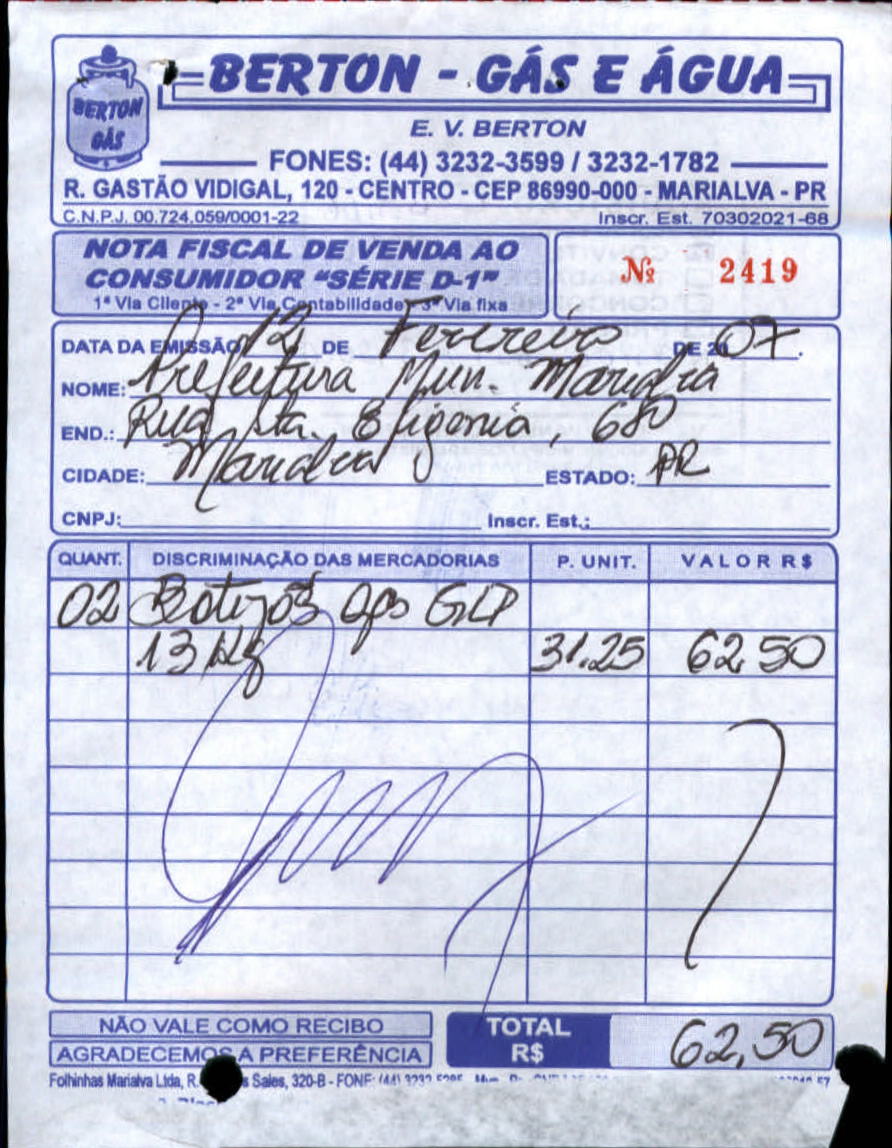 BERTON GÁS
BERTON - GÁS E ÁGUA
E. V. BERTON
FONES: (44) 3232-3599 / 3232-1782
R. GASTÃO VIDIGAL, 120 - CENTRO - CEP 86990-000 - MARIALVA - PR
C.N.P.J. 00.724.059/0001-22 Inscr. Est. 70302021-68
NOTA FISCAL DE VENDA AO
CONSUMIDOR "SÉRIE D-1"
1ª Via Cliente - 2ª Via Contabilidade - 3ª Via fixa
Nº 2419
DATA DA EMISSÃO 12 DE Fevereiro DE 2007.
NOME: Prefeitura Mun. Marialva
END.: Rua Sta. Efigenia, 680
CIDADE: Marialva ESTADO: PR
CNPJ: Inscr. Est.:
QUANT. DISCRIMINAÇÃO DAS MERCADORIAS P. UNIT. VALOR R$
02 Botijós gás GLP
13 Kg 31.25 62,50
NÃO VALE COMO RECIBO
AGRADECEMOS A PREFERÊNCIA
TOTAL R$ 62,50
Folhinhas Marialva Ltda, R. Sales, 320-B - FONE: (44) 3232